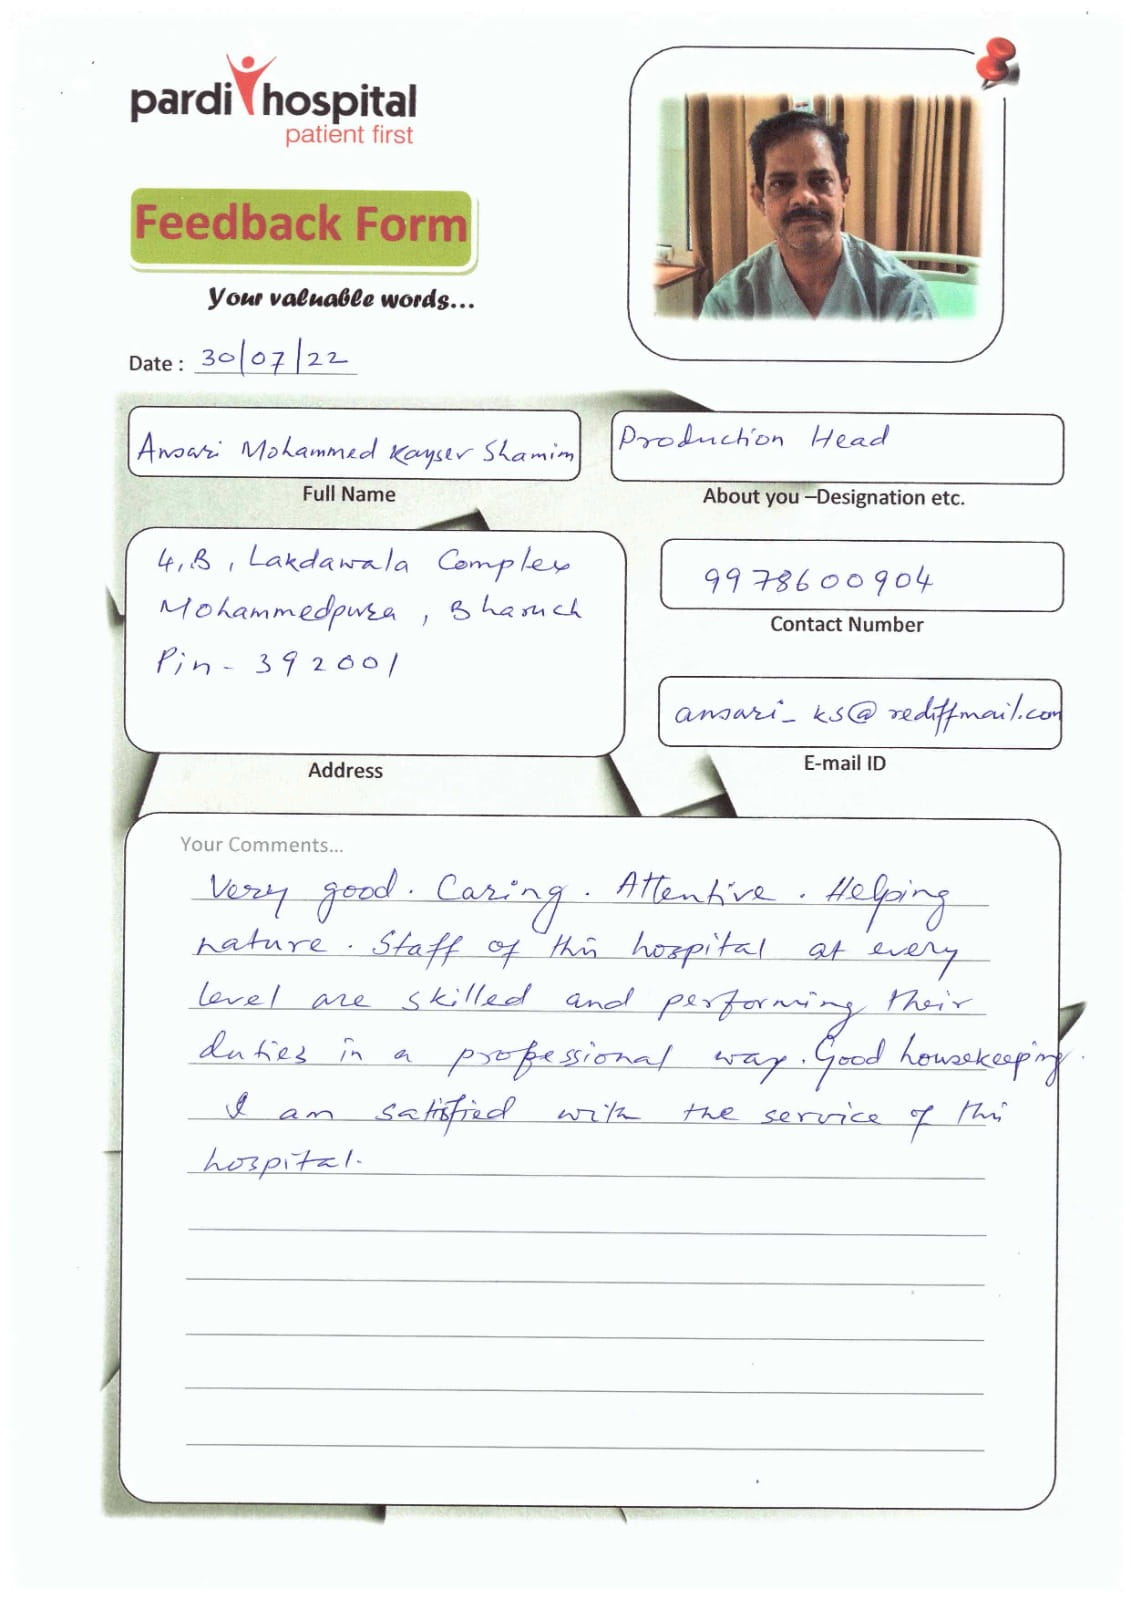 pardi hospital
patient first
Feedback Form
Your valuable words...
Date : 30/07/22
Ansari Mohammed Kayser Shamim
Full Name
Production Head
About you –Designation etc.
4, B, Lakdawala Complex
Mohammedpura, Bharuch
Pin - 392001
Address
9978600904
Contact Number
ansari_ks@rediffmail.com
E-mail ID
Your Comments...
Very good. Caring. Attentive. Helping
nature. Staff of this hospital at every
level are skilled and performing their
duties in a professional way. Good housekeeping.
I am satisfied with the service of this
hospital.